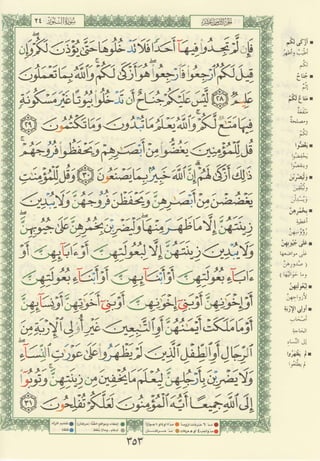 سُورَةُ النُّور ٢٤
فَإِن لَّمْ تَجِدُوا فِيهَآ أَحَدًا فَلَا تَدْخُلُوهَا حَتَّىٰ يُؤْذَنَ لَكُمْ وَإِن
قِيلَ لَكُمُ ارْجِعُوا فَارْجِعُوا هُوَ أَزْكَىٰ لَكُمْ وَاللَّهُ بِمَا تَعْمَلُونَ
عَلِيمٌ ٢٨ لَّيْسَ عَلَيْكُمْ جُنَاحٌ أَن تَدْخُلُوا بُيُوتًا غَيْرَ مَسْكُونَةٍ
فِيهَا مَتَاعٌ لَّكُمْ وَاللَّهُ يَعْلَمُ مَا تُبْدُونَ وَمَا تَكْتُمُونَ ٢٩
قُل لِّلْمُؤْمِنِينَ يَغُضُّوا مِنْ أَبْصَارِهِمْ وَيَحْفَظُوا فُرُوجَهُمْ
ذَٰلِكَ أَزْكَىٰ لَهُمْ إِنَّ اللَّهَ خَبِيرٌ بِمَا يَصْنَعُونَ ٣٠ وَقُل لِّلْمُؤْمِنَاتِ
يَغْضُضْنَ مِنْ أَبْصَارِهِنَّ وَيَحْفَظْنَ فُرُوجَهُنَّ وَلَا يُبْدِينَ
زِينَتَهُنَّ إِلَّا مَا ظَهَرَ مِنْهَا وَلْيَضْرِبْنَ بِخُمُرِهِنَّ عَلَىٰ جُيُوبِهِنَّ
وَلَا يُبْدِينَ زِينَتَهُنَّ إِلَّا لِبُعُولَتِهِنَّ أَوْ ءَابَآئِهِنَّ أَوْ
ءَابَآءِ بُعُولَتِهِنَّ أَوْ أَبْنَآئِهِنَّ أَوْ أَبْنَآءِ بُعُولَتِهِنَّ
أَوْ إِخْوَٰنِهِنَّ أَوْ بَنِىٓ إِخْوَٰنِهِنَّ أَوْ بَنِىٓ أَخَوَٰتِهِنَّ أَوْ نِسَآئِهِنَّ
أَوْ مَا مَلَكَتْ أَيْمَٰنُهُنَّ أَوِ التَّٰبِعِينَ غَيْرِ أُولِى الْإِرْبَةِ مِنَ
الرِّجَالِ أَوِ الطِّفْلِ الَّذِينَ لَمْ يَظْهَرُوا عَلَىٰ عَوْرَٰتِ النِّسَآءِ
وَلَا يَضْرِبْنَ بِأَرْجُلِهِنَّ لِيُعْلَمَ مَا يُخْفِينَ مِن زِينَتِهِنَّ وَتُوبُوٓا
إِلَى اللَّهِ جَمِيعًا أَيُّهَ الْمُؤْمِنُونَ لَعَلَّكُمْ تُفْلِحُونَ ٣١
٣٥٣